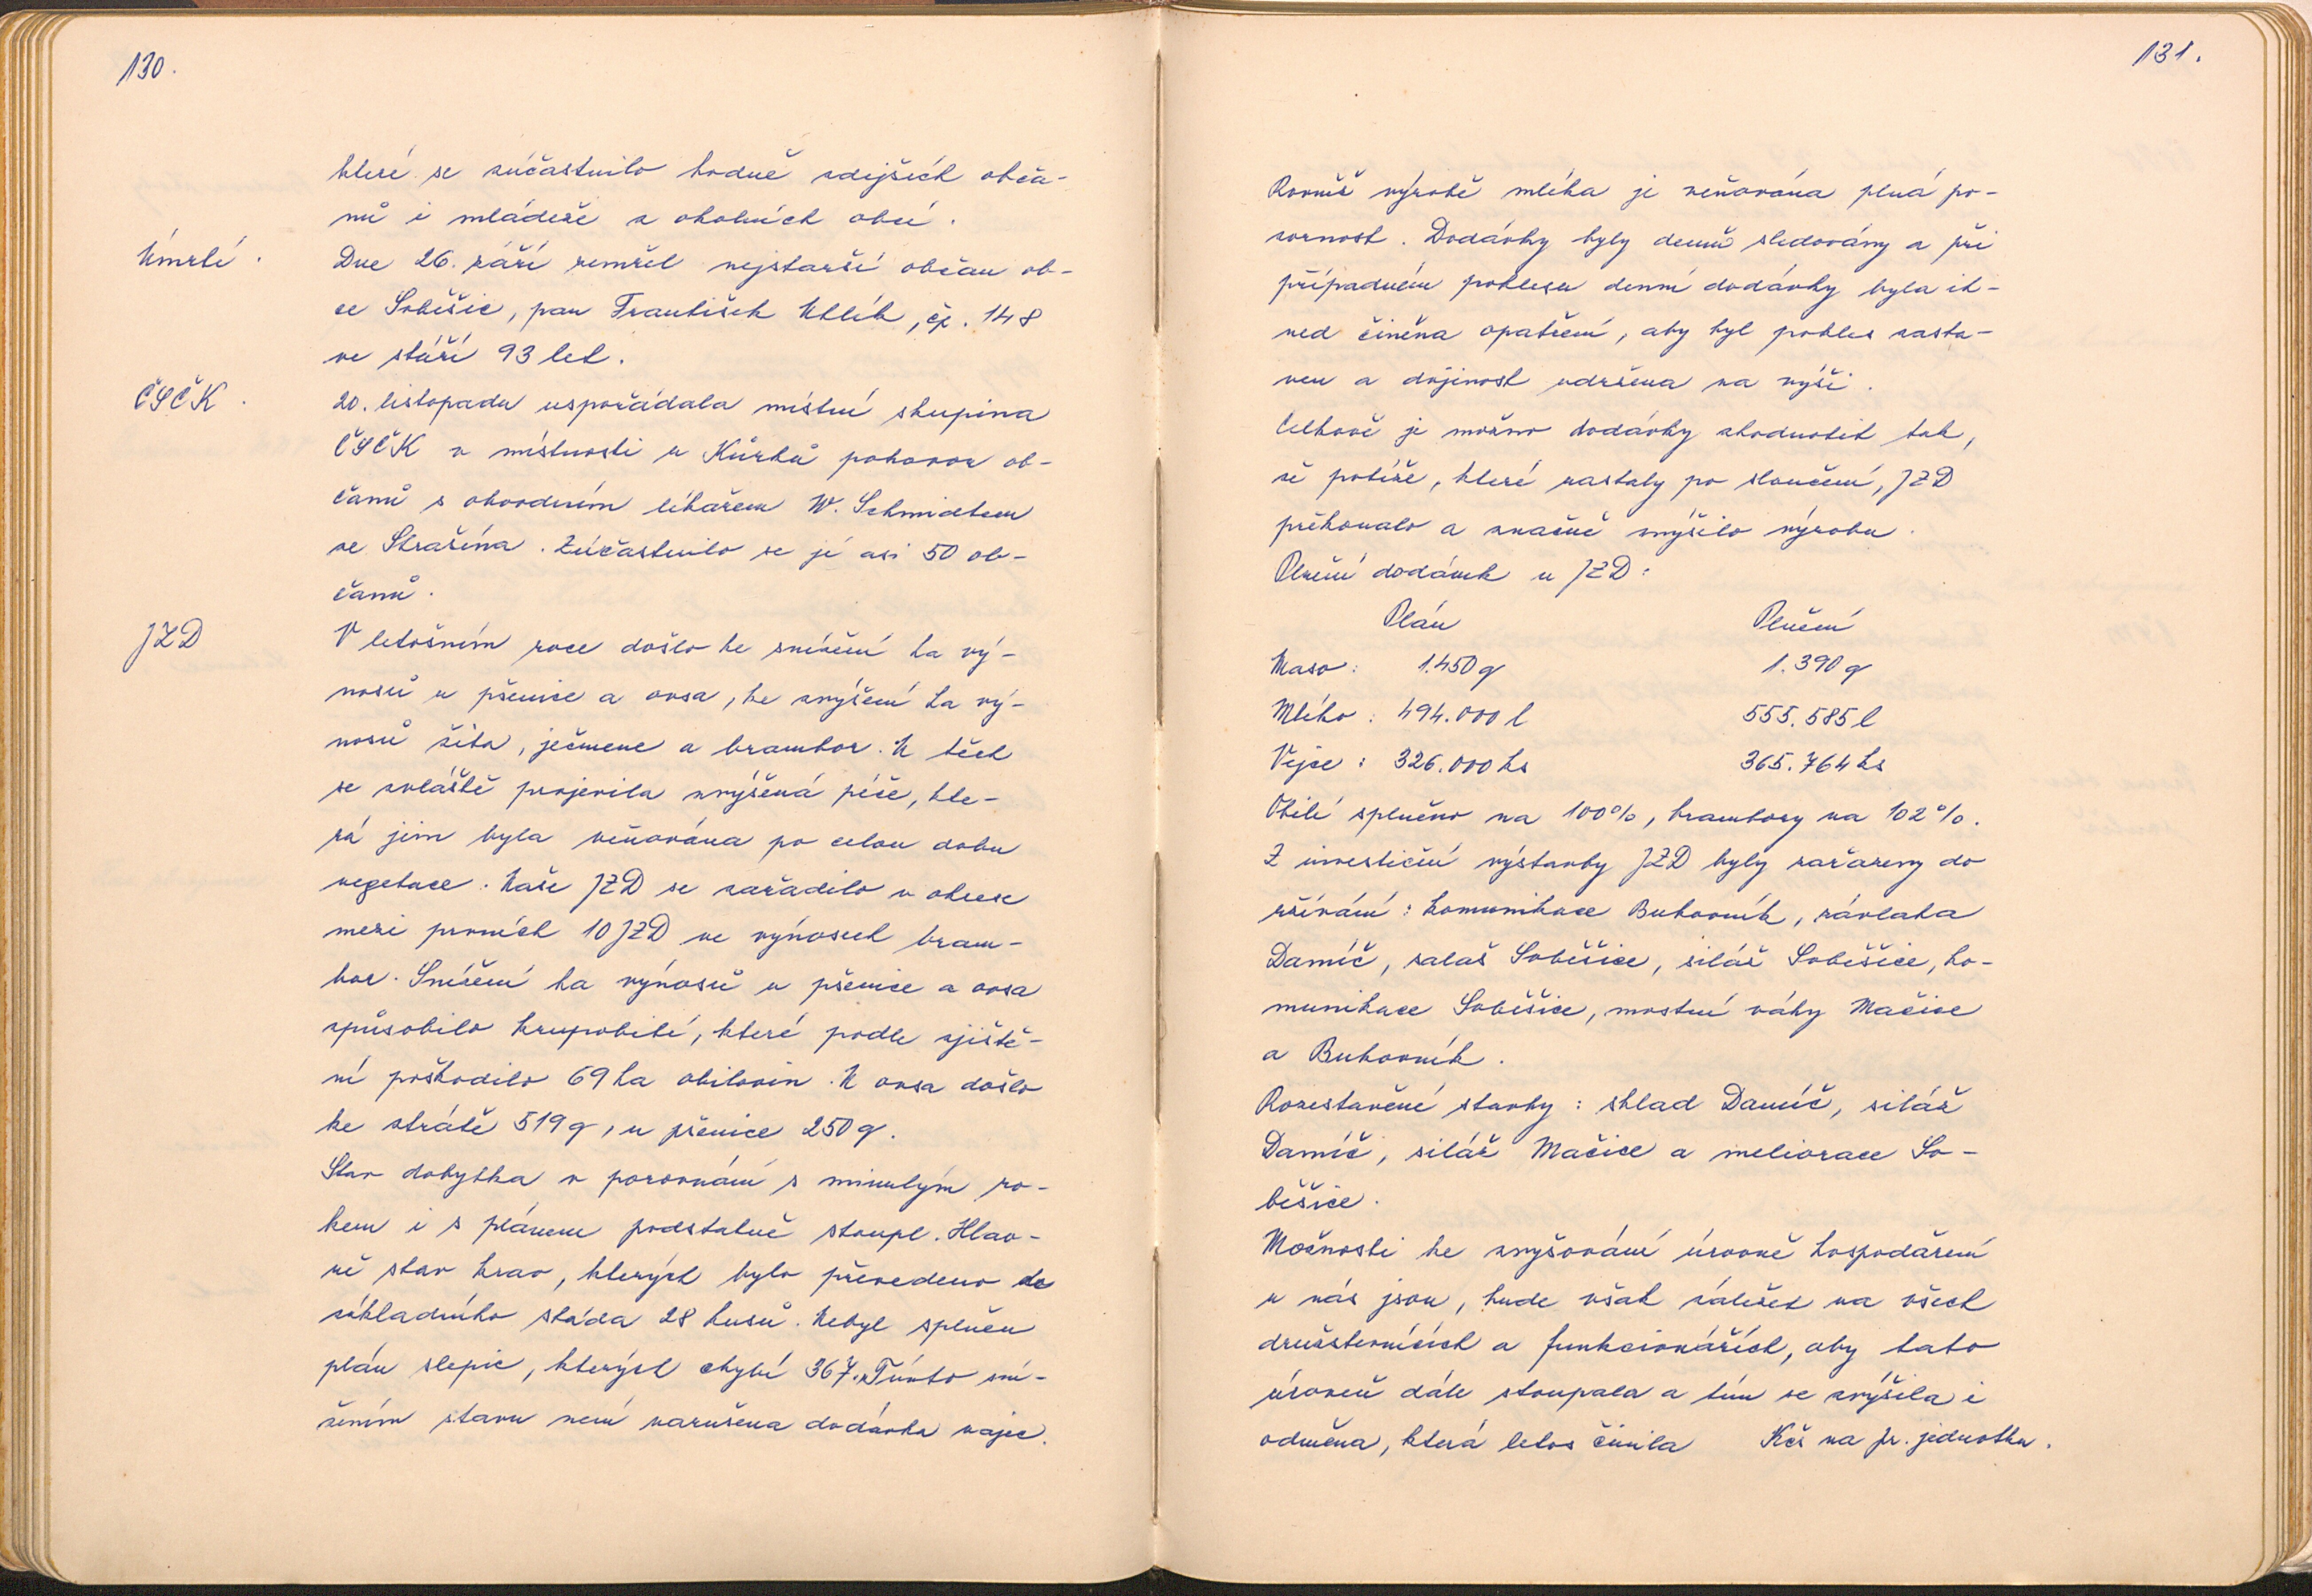 130.
které se zúčastnilo hodně zdejších obča-
nů i mládeže z okolních obcí.
Úmrtí.
Dne 26. září zemřel nejstarší občan ob-
ce Soběšic, pan František Uhlík, čp. 148
ve stáří 93 let.
ČSČK.
20. listopadu uspořádala místní skupina
ČSČK v místnosti u Kůrků pohovor ob-
čanů s obvodním lékařem W. Schmidtem
ze Strašína. Zúčastnilo se jí asi 50 ob-
čanů.
JZD
V letošním roce došlo ke snížení ha vý-
nosů u pšenice a ovsa, ke zvýšení ha vý-
nosů žita, ječmene a brambor. U těch
se zvláště projevila zvýšená péče, kte-
rá jim byla věnována po celou dobu
vegetace. Naše JZD se zařadilo v okrese
mezi prvních 10 JZD ve výnosech bram-
bor. Snížení ha výnosů u pšenice a ovsa
způsobilo krupobití, které podle zjiště-
ní poškodilo 69 ha obilovin. U ovsa došlo
ke ztrátě 519 q, u pšenice 250 q.
Stav dobytka v porovnání s minulým ro-
kem i s plánem podstatně stoupl. Hlav-
ně stav krav, kterých bylo převedeno do
základního stáda 28 kusů. Nebyl splněn
plán slepic, kterých chybí 367. Tímto sní-
žením stavu není narušena dodávka vajec.
131.
Rovněž výrobě mléka je věňována plná po-
zornost. Dodávky byly denně sledovány a při
případném poklesu denní dodávky byla ih-
ned činěna opatření, aby byl pokles zasta-
ven a dojivost udržena na výši.
Celkově je možno dodávky zhodnotit tak,
že potíže, které nastaly po sloučení, JZD
překonalo a značně zvýšilo výrobu.
Plnění dodávek u JZD:
Plán Plnění
Maso: 1.450 q 1.390 q
Mléko: 494.000 l 555.585 l
Vejce: 326.000 ks 365.764 ks
Obilí splněno na 100%, brambory na 102%.
Z investiční výstavby JZD byly zařazeny do
užívání: komunikace Bukovník, závlaha
Damíč, salaš Soběšice, siláž Soběšice, ko-
munikace Soběšice, mostní váhy Mačice
a Bukovník.
Rozestavěné stavby: sklad Damíč, siláž
Damíč, siláž Mačice a meliorace So-
běšice.
Možnosti ke zvyšování úrovně hospodaření
u nás jsou, bude však záležet na všech
družstevnících a funkcionářích, aby tato
úroveň dále stoupala a tím se zvýšila i
odměna, která letos činila Kčs na pr. jednotku.